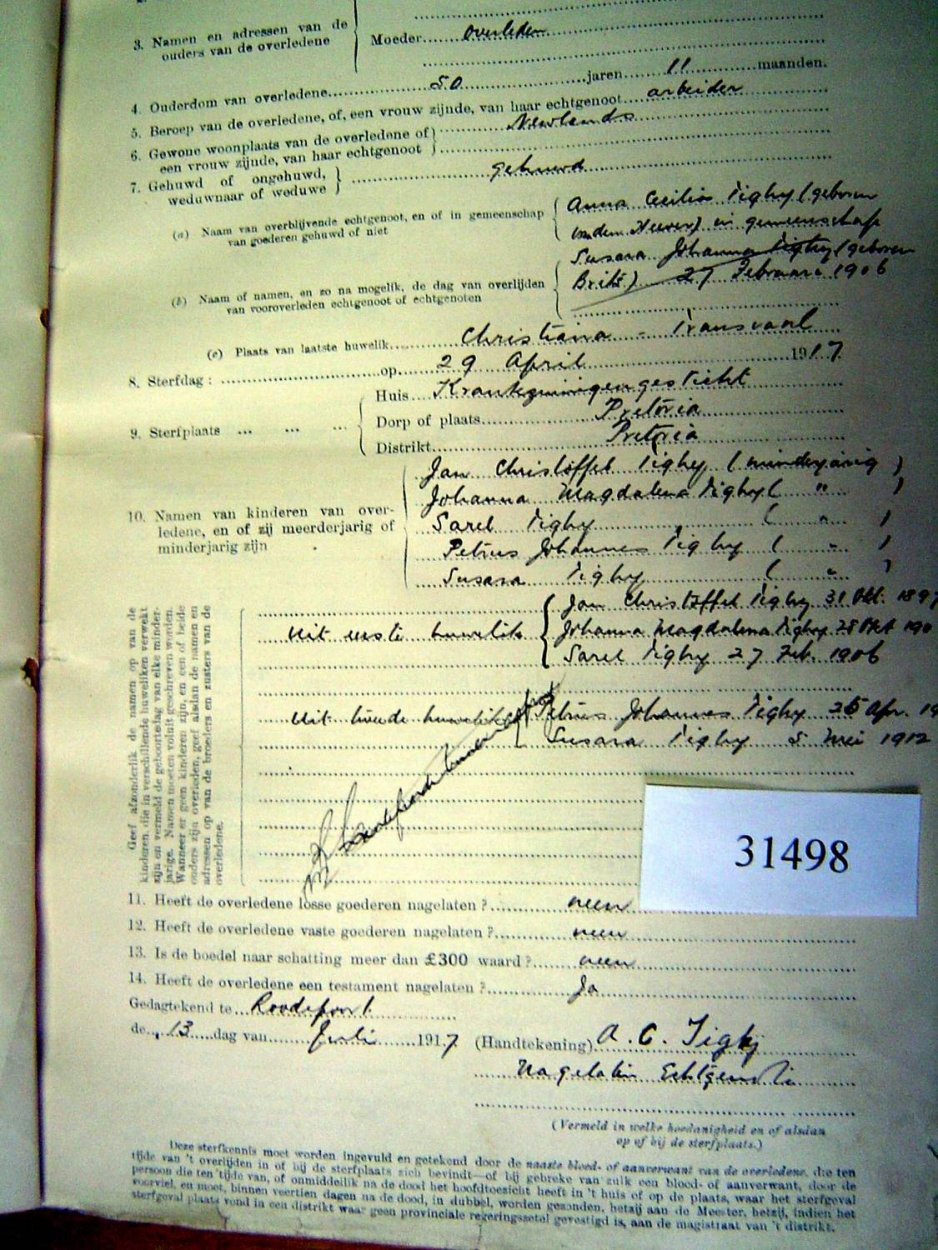 3. Namen en adressen van de
ouders van de overledene
Moeder overleden
4. Ouderdom van overledene 50 jaren 11 maanden.
5. Beroep van de overledene, of, een vrouw zijnde, van haar echtgenoot arbeider
6. Gewone woonplaats van de overledene of
een vrouw zijnde, van haar echtgenoot
Newlands
7. Gehuwd of ongehuwd,
weduwnaar of weduwe
gehuwd
(a) Naam van overblijvende echtgenoot, en of in gemeenschap
van goederen gehuwd of niet
Anna Cecilia Tighy (geboren
van den Heever) in gemeenschap
(b) Naam of namen, en zo na mogelik, de dag van overlijden
van vooroverleden echtgenoot of echtgenoten
Susara Johanna Tighy (geboren
Brits) 27 Februari 1906
(c) Plaats van laatste huwelik Christiana - Transvaal
8. Sterfdag : op 29 April 1917
9. Sterfplaats
Huis Krankzinnigengesticht
Dorp of plaats Pretoria
Distrikt Pretoria
10. Namen van kinderen van over-
ledene, en of zij meerderjarig of
minderjarig zijn
Jan Christoffel Tighy (minderjarig)
Johanna Magdalena Tighy ( " )
Sarel Tighy ( " )
Petrus Johannes Tighy ( " )
Susara Tighy ( " )
Geef afzonderlik de namen op van de
kinderen die in verschillende huweliken verwekt
zijn en vermeld de geboortedag van elke minder-
jarige. Namen moeten voluit geschreven worden.
Wanneer er geen kinderen zijn, en een of beide
ouders zijn overleden, geef alsdan de namen en
adressen op van de broeders en zusters van de
overledene.
Uit eerste huwelik
Jan Christoffel Tighy 31 Okt. 1897
Johanna Magdalena Tighy 28 Okt 190
Sarel Tighy 27 Feb. 1906
Uit tweede huwelik
Petrus Johannes Tighy 26 Apr. 19
Susara Tighy 5 Mei 1912
31498
11. Heeft de overledene losse goederen nagelaten ? neen
12. Heeft de overledene vaste goederen nagelaten ? neen
13. Is de boedel naar schatting meer dan £300 waard ? neen
14. Heeft de overledene een testament nagelaten ? Ja
Gedagtekend te Roodepoort
de 13 dag van Juli 1917 (Handtekening) A. C. Tighy
Nagelaten Echtgenote
(Vermeld in welke hoedanigheid en of alsdan
op of bij de sterfplaats.)
Deze sterfkennis moet worden ingevuld en getekend door de naaste bloed- of aanverwant van de overledene, die ten
tijde van 't overlijden in of bij de sterfplaats zich bevindt—of bij gebreke van zulk een bloed- of aanverwant, door de
persoon die ten tijde van, of onmiddellik na de dood het hoofdtoezicht heeft in 't huis of op de plaats, waar het sterfgeval
voorviel, en moet, binnen veertien dagen na de dood, in dubbel, worden gezonden, hetzij aan de Meester, hetzij, indien het
sterfgeval plaats vond in een distrikt waar geen provinciale regeringszetel gevestigd is, aan de magistraat van 't distrikt.